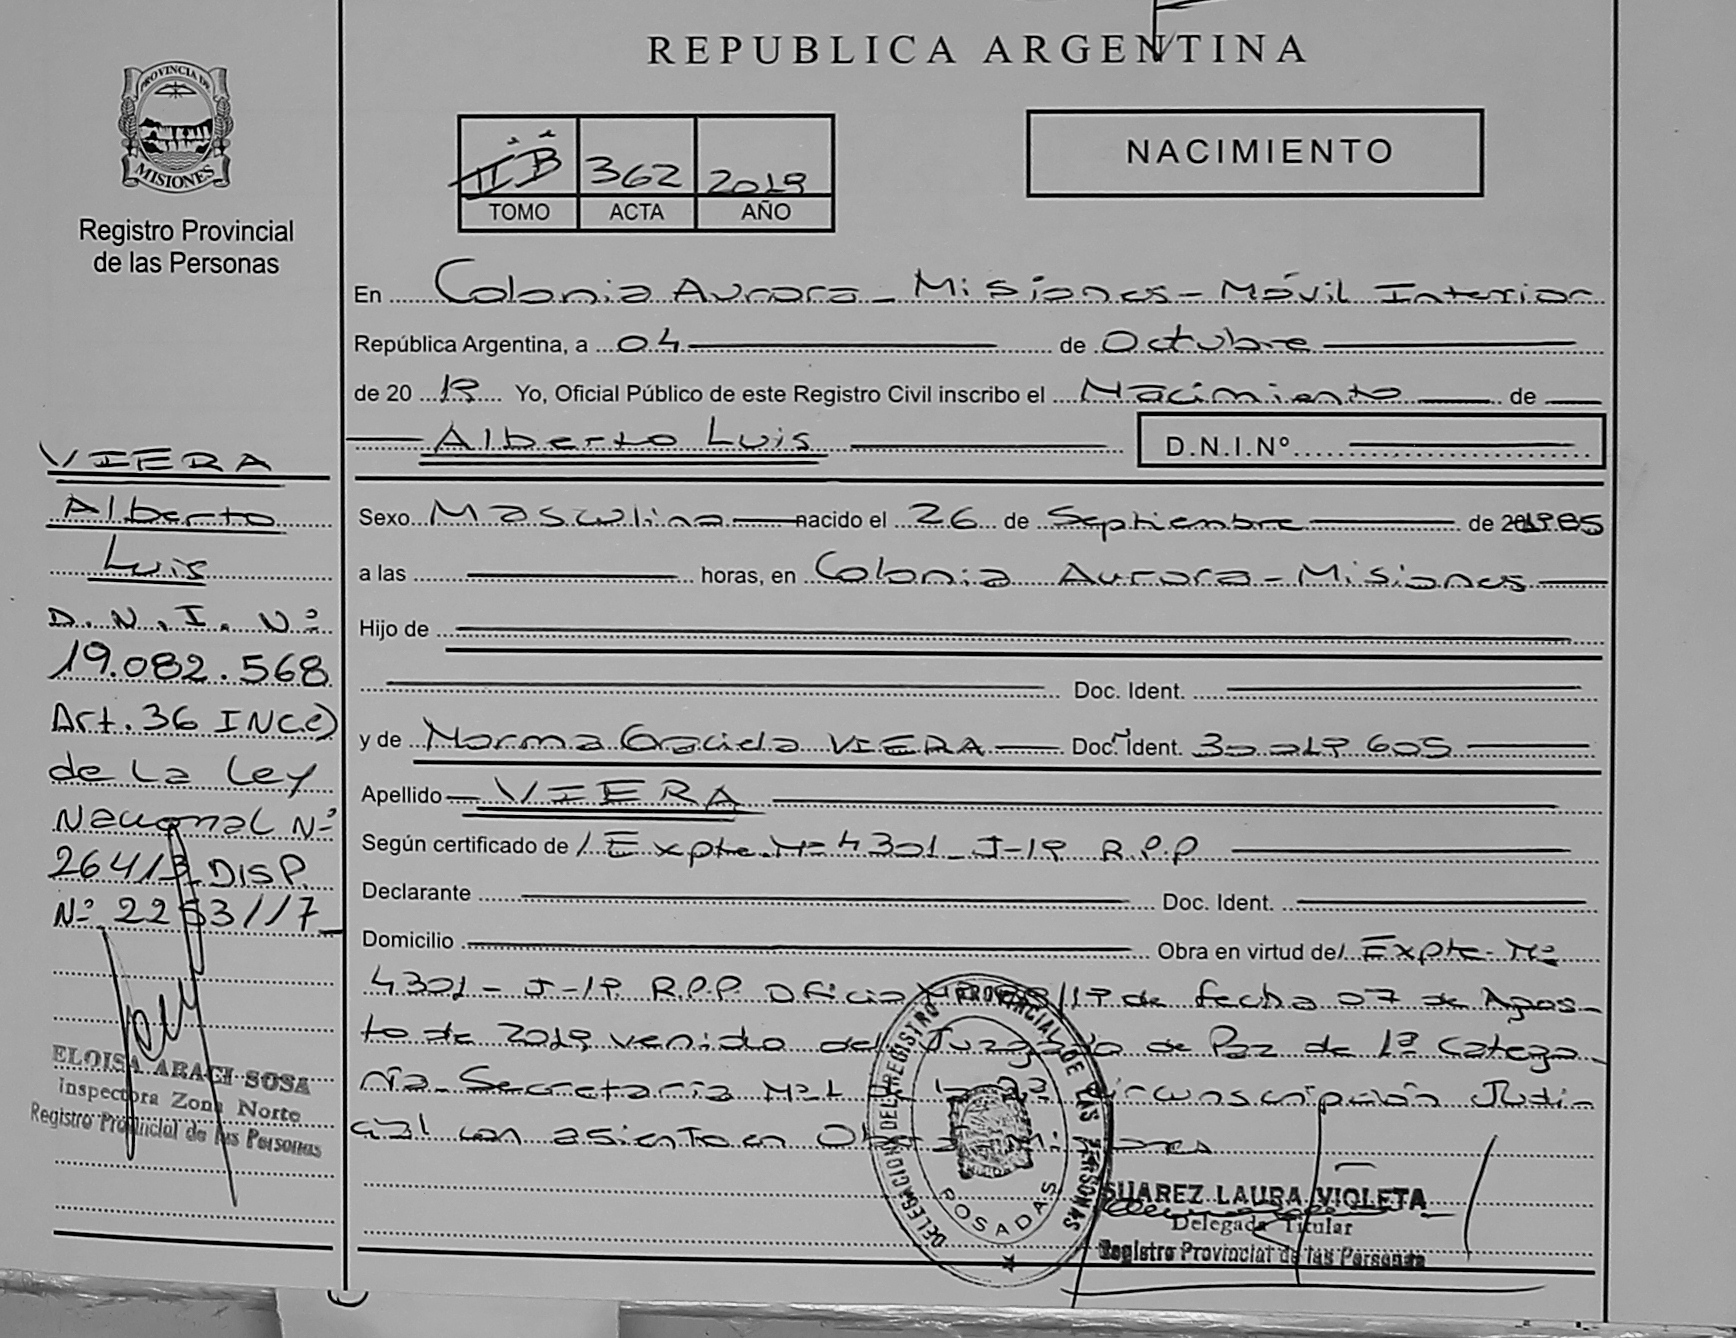 REPUBLICA ARGENTINA
PROVINCIA DE
MISIONES
Registro Provincial
de las Personas
II B 362 2019
TOMO ACTA AÑO
NACIMIENTO
En Colonia Aurora - Misiones - Móvil Interior
República Argentina, a 04 de Octubre
de 20 19 Yo, Oficial Público de este Registro Civil inscribo el Nacimiento de
Alberto Luis D.N.I.Nº
Sexo Masculino nacido el 26 de Septiembre de 1985
a las horas, en Colonia Aurora - Misiones
Hijo de
Doc. Ident.
y de Norma Graciela VIERA Doc. Ident. 30.019.605
Apellido VIERA
Según certificado de / Expte. Nº 4301 - J-19 R.P.P
Declarante Doc. Ident.
Domicilio Obra en virtud de/ Expte. Nº
4301 - J-19 R.P.P. Oficio /19 de fecha 07 de Agos-
to de 2019 venido del Juzgado de Paz de 1º Catego-
ria - Secretaria Nº 1 Circunscripción Judi-
cial con asiento en
VIERA
Alberto
Luis
D.N.I. Nº
19.082.568
Art. 36 INC e)
de La Ley
Nacional Nº
26413 DISP.
Nº 2253//7
ELOISA ARACI SOSA
Inspectora Zona Norte
Registro Provincial de las Personas
DELEGACION DEL REGISTRO PROVINCIAL DE LAS PERSONAS
POSADAS
SUAREZ LAURA VIOLETA
Delegada Titular
Registro Provincial de las Personas